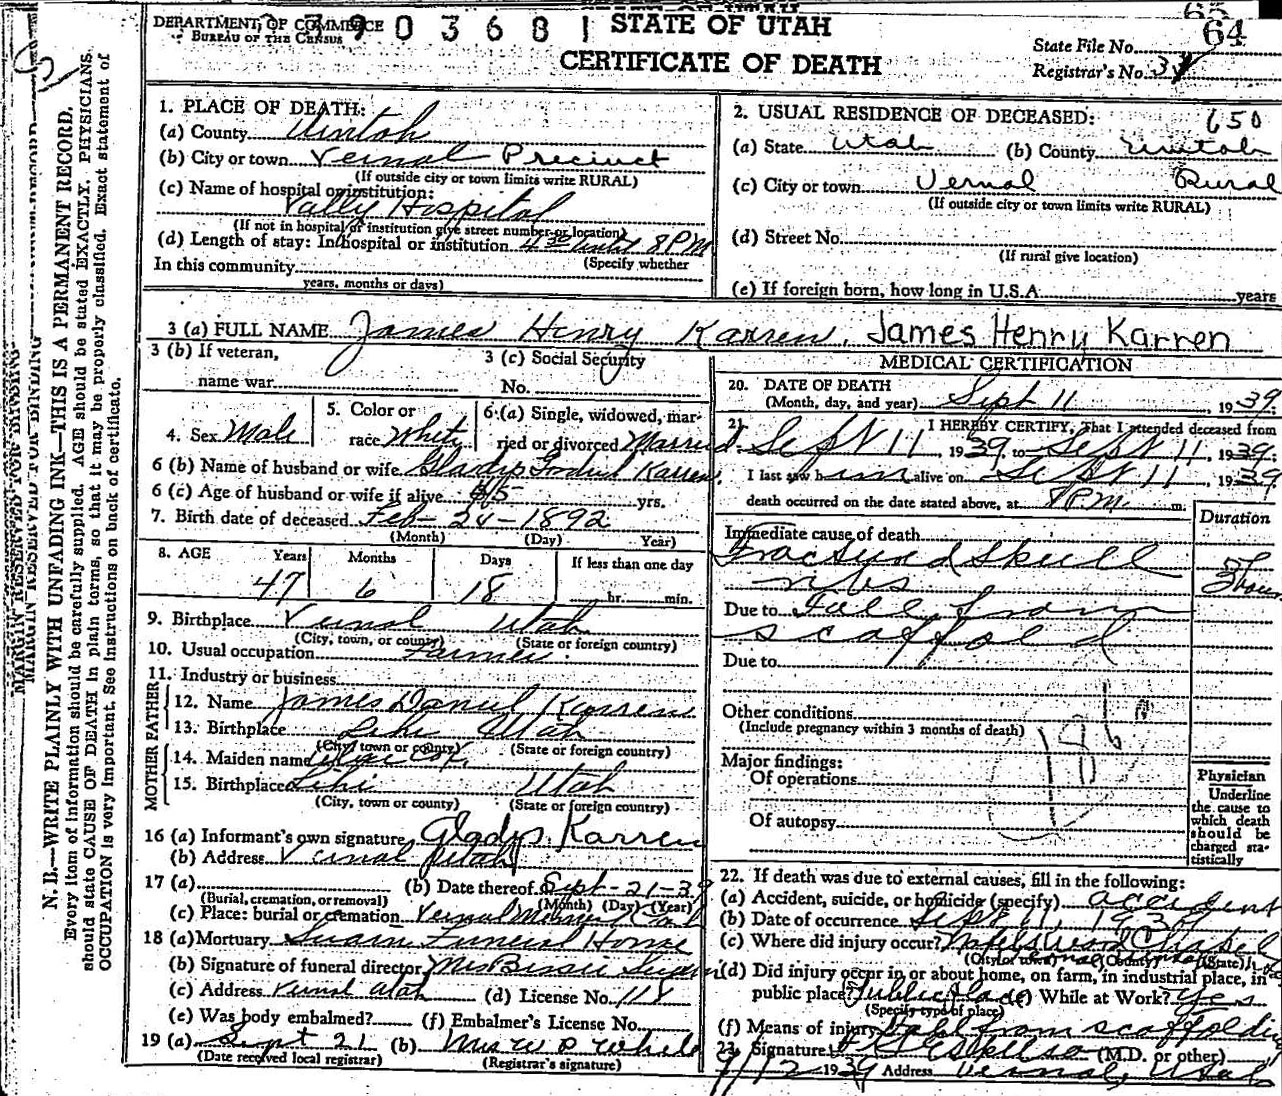 DEPARTMENT OF COMMERCE
BUREAU OF THE CENSUS
3903681
STATE OF UTAH
CERTIFICATE OF DEATH
65
64
State File No.
Registrar's No. 34
MARGIN RESERVED FOR BINDING
N. B.—WRITE PLAINLY WITH UNFADING INK—THIS IS A PERMANENT RECORD.
Every item of information should be carefully supplied. AGE should be stated EXACTLY. PHYSICIANS
should state CAUSE OF DEATH in plain terms, so that it may be properly classified. Exact statement of
OCCUPATION is very important. See instructions on back of certificate.
1. PLACE OF DEATH:
(a) County Uintah
(b) City or town Vernal Precinct
(If outside city or town limits write RURAL)
(c) Name of hospital or institution:
Vally Hospital
(If not in hospital or institution give street number or location)
(d) Length of stay: In hospital or institution 4 30 until 8 P M
(Specify whether
In this community
years, months or days)
2. USUAL RESIDENCE OF DECEASED: 650
(a) State Utah (b) County Uintah
(c) City or town Vernal Rural
(If outside city or town limits write RURAL)
(d) Street No.
(If rural give location)
(e) If foreign born, how long in U.S.A. years
3 (a) FULL NAME James Henry Karren. James Henry Karren
3 (b) If veteran,
name war
3 (c) Social Security
No.
4. Sex Male
5. Color or
race White
6 (a) Single, widowed, mar-
ried or divorced Married
6 (b) Name of husband or wife Gladys Karren
6 (c) Age of husband or wife if alive yrs.
7. Birth date of deceased Feb - 24 - 1892
(Month) (Day) Year)
8. AGE Years Months Days If less than one day
47 6 18 hr. min.
9. Birthplace Vernal Utah
(City, town, or county) (State or foreign country)
10. Usual occupation Farmer
11. Industry or business
FATHER
12. Name James Daniel Karren
13. Birthplace Lehi Utah
(City, town or county) (State or foreign country)
MOTHER
14. Maiden name Cox
15. Birthplace Lehi Utah
(City, town or county) (State or foreign country)
16 (a) Informant's own signature Gladys Karren
(b) Address Vernal Utah
17 (a) (b) Date thereof Sept-21-39
(Burial, cremation, or removal) (Month) (Day) (Year)
(c) Place: burial or cremation Vernal
18 (a) Mortuary Swain Funeral Home
(b) Signature of funeral director Mrs Bessie Swain
(c) Address Vernal Utah (d) License No. 118
(e) Was body embalmed? (f) Embalmer's License No.
19 (a) Sept 21 (b) Mrs W P White
(Date received local registrar) (Registrar's signature)
MEDICAL CERTIFICATION
20. DATE OF DEATH
(Month, day, and year) Sept 11, 1939.
21. I HEREBY CERTIFY, That I attended deceased from
Sept 11, 1939, to Sept 11, 1939.
I last saw him alive on Sept 11, 1939
death occurred on the date stated above, at 8 P.M. m.
Duration
Immediate cause of death
Fractured skull
ribs
Due to Fall from
scaffold
Due to
Other conditions
(Include pregnancy within 3 months of death)
Major findings:
Of operations
Of autopsy
Physician
Underline
the cause to
which death
should be
charged sta-
tistically
22. If death was due to external causes, fill in the following:
(a) Accident, suicide, or homicide (specify) accident
(b) Date of occurrence Sept 11, 1939
(c) Where did injury occur?
(City or town) (County) (State)
(d) Did injury occur in or about home, on farm, in industrial place, in
public place? Public place (e) While at Work? yes
(Specify type of place)
(f) Means of injury Fall from scaffolding
23. Signature (M.D. or other)
9/12 1939 Address Vernal, Utah